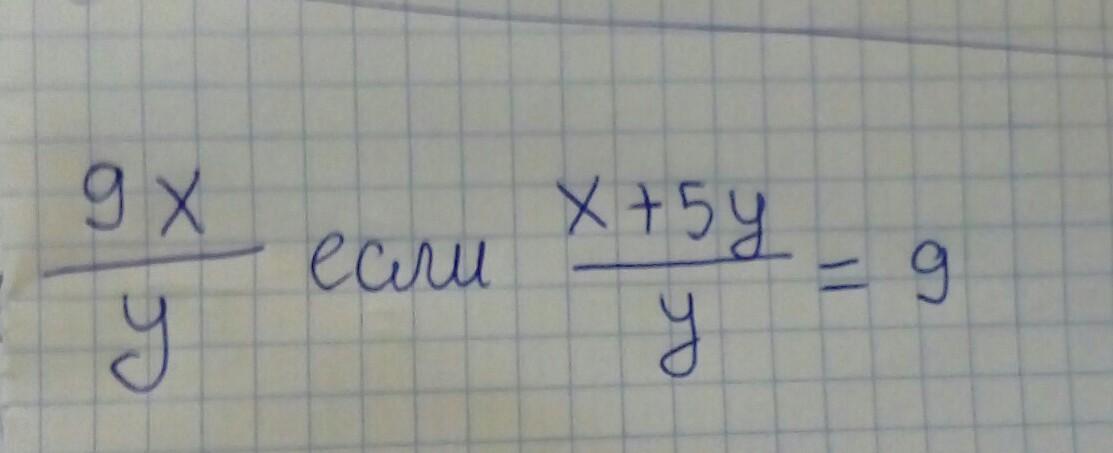 9x/y если (x+5y)/y = 9